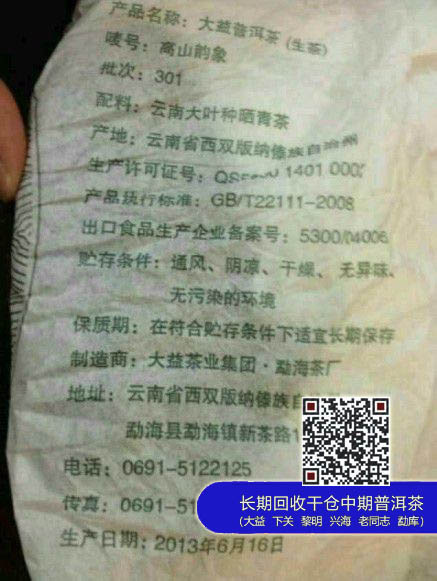 产品名称：大益普洱茶（生茶）
唛号：高山韵象
批次：301
配料：云南大叶种晒青茶
产地：云南省西双版纳傣族自治州
生产许可证号：QS5 1401 000
产品执行标准：GB/T22111-2008
出口食品生产企业备案号：5300/04006
贮存条件：通风、阴凉、干燥、无异味、
无污染的环境
保质期：在符合贮存条件下适宜长期保存
制造商：大益茶业集团·勐海茶厂
地址：云南省西双版纳傣族自
勐海县勐海镇新茶路1
电话：0691-5122125
传真：0691-51
生产日期：2013年6月16日
长期回收干仓中期普洱茶
（大益 下关 黎明 兴海 老同志 勐库）